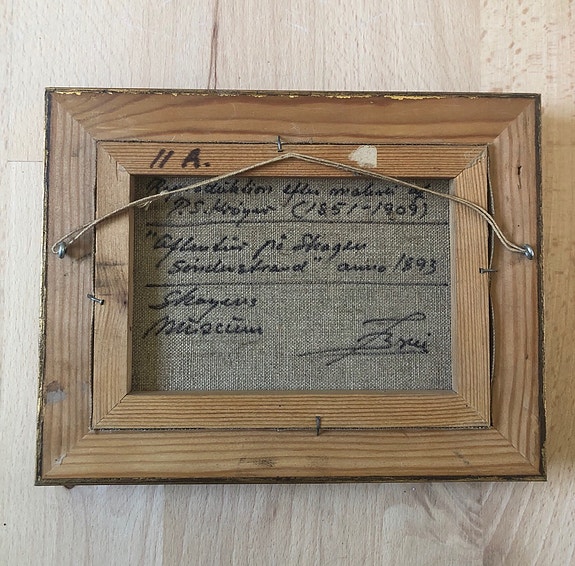 11 A.
Reproduktion efter maleri af
P.S. Krøyer (1851-1909)
"Aftentur på Skagen
Sønderstrand" anno 1893
Skagens
Museum